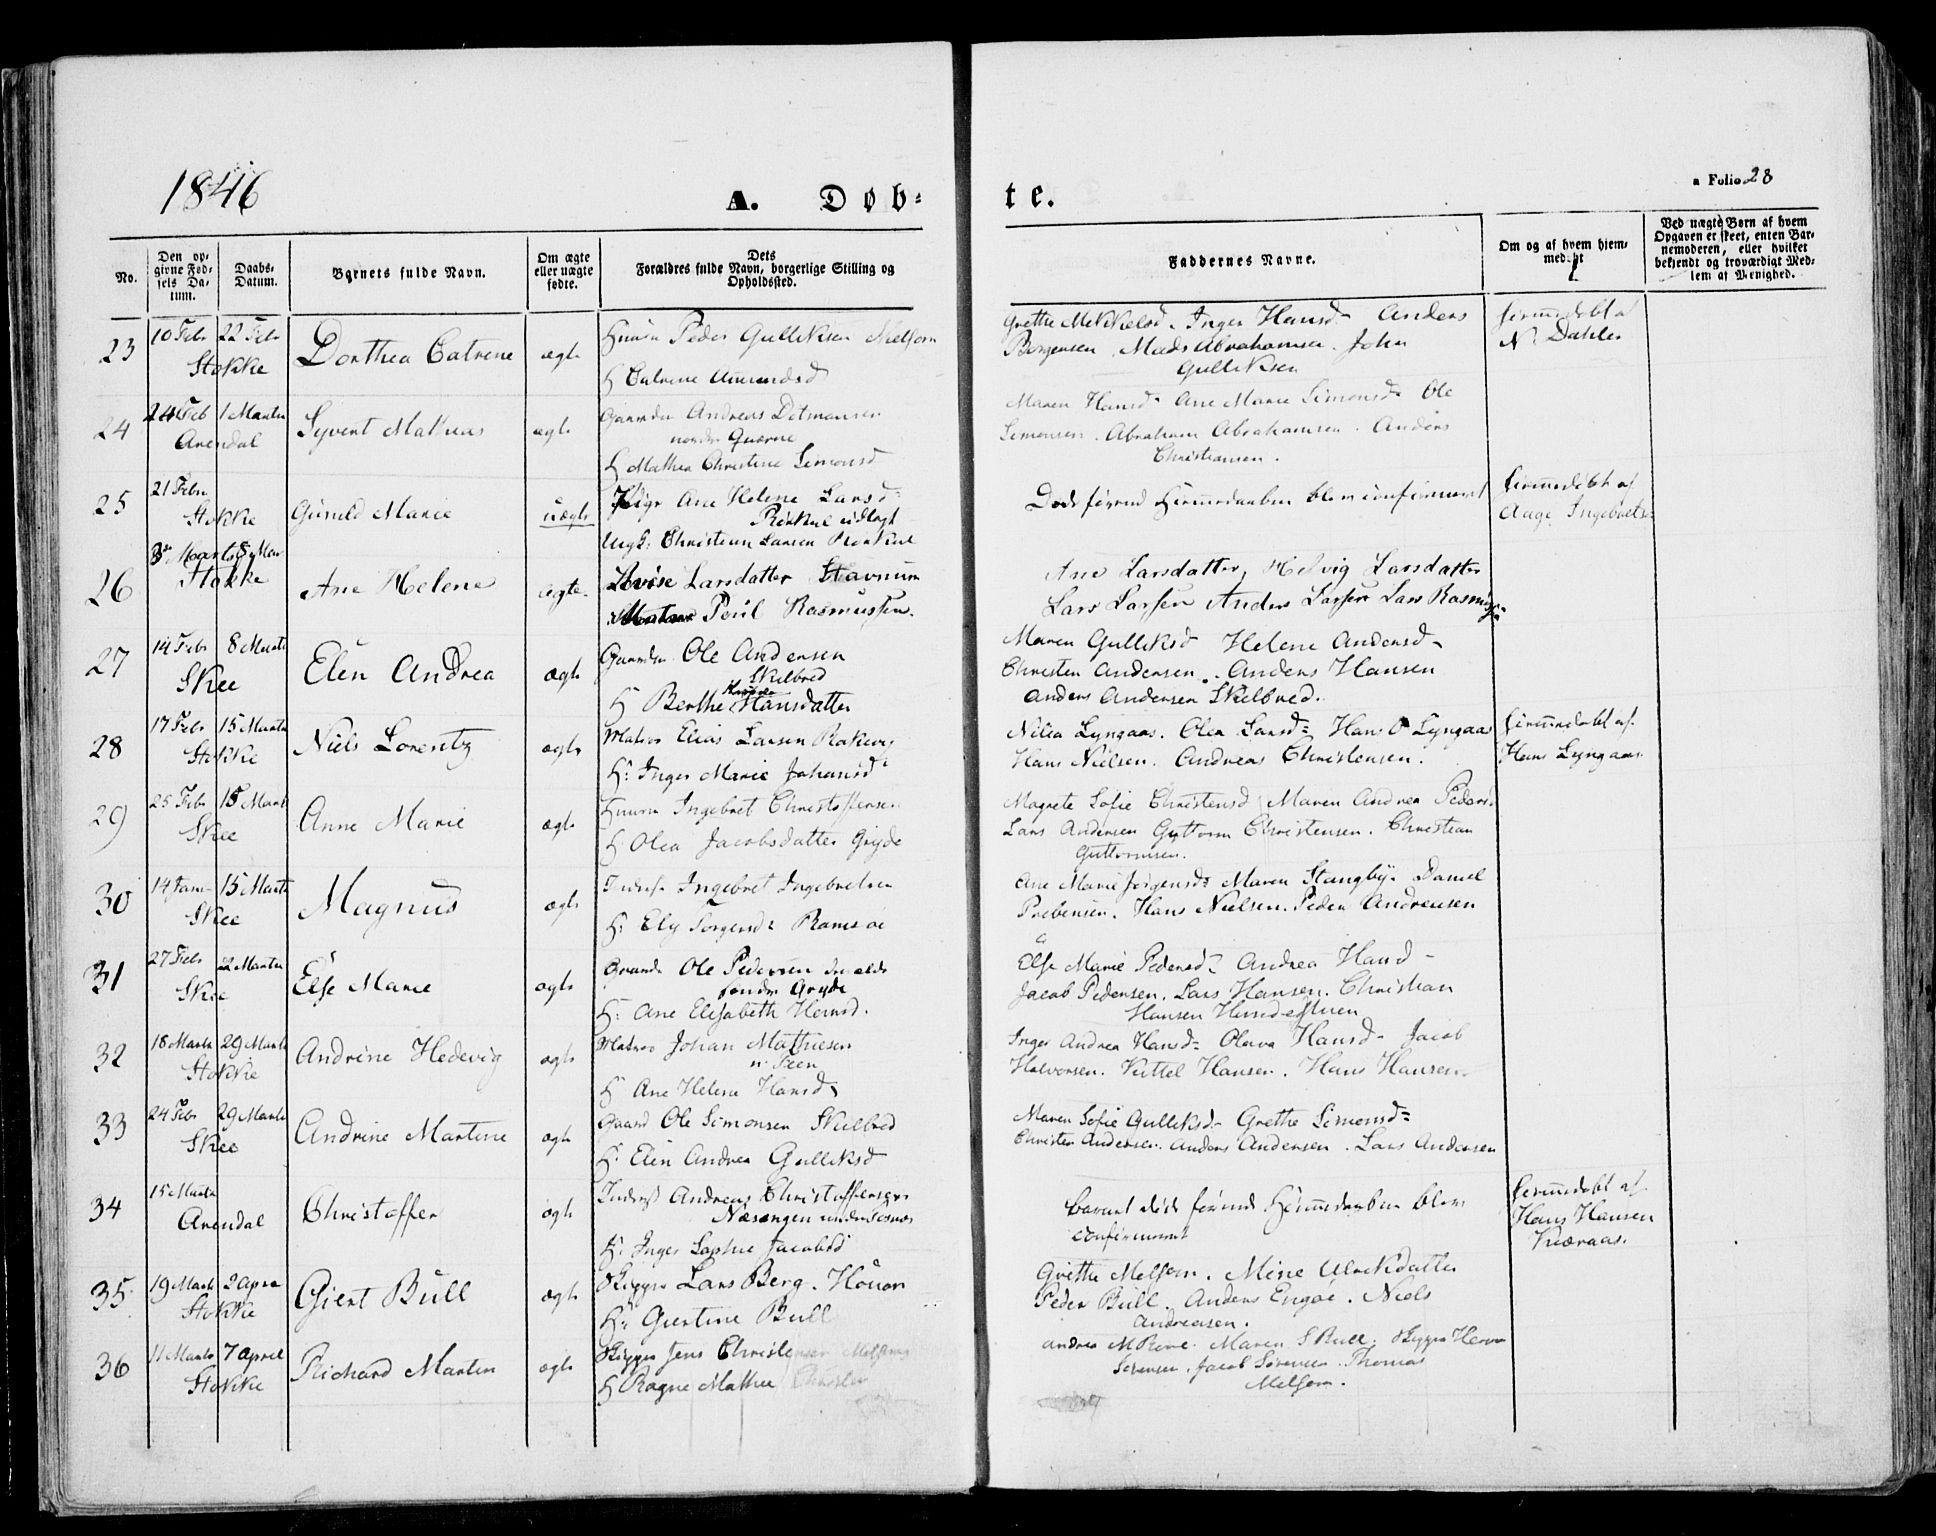 1846
A. Døb-
te.
a Folio 28
No.
Den op-
givne Fød-
sels Da-
tum.
Daabs-
Datum.
Barnets fulde Navn.
Om ægte
eller uægte
fødte.
Dets
Forældres fulde Navn, borgerlige Stilling og
Opholdssted.
Faddernes Navne.
Om og af hvem hjem-
medøbt
Ved uægte Børn af hvem
Opgaven er skeet, enten Bar-
nemoderen, eller hvilket
bekjendt og troværdigt Med-
lem af Menighed.
23 10 Febr 22 Febr Stokke
Dorthea Catrine
ægte
Peder Gulliksen Melsom
H Catrine Amundsd
Grethe Mikkelsd. Inger Hansd- Anders
Borgersen. Mads Abrahamsen. John
Gulliksen
hjemmedøbt af
N. Dahler
24 24 Feb 1 Marts Arendal
Syvert Mathias
ægte
Gaardm Andreas Ditmansen
nordre Qværne
H Mathea Christine Simonsd
Maren Hansd- Ane Marie Simonsd- Ole
Simonsen. Abraham Abrahamsen. Anders
Christiansen.
25 21 Febr Stokke
Gunild Marie
uægte
Pige Ane Helene Larsd-
udlagt
Ungk: Christian Larsen
Døde førend Hjemmedaaben blev confirmeret
hjemmedøbt af
Aage Ingebrets:
26 3 Marts 8 Mar Stokke
Ane Helene
ægte
Lovise Larsdatter Stavnum
Poul Rasmussen
Ane Larsdatter, Hedvig Larsdatter
Lars Larsen Anders Larsen Lars Rasmusen
27 14 Febr 8 Marts Skee
Elen Andrea
ægte
Gaardm Ole Andersen
Skilbred
H Berthe Hansdatter
Maren Gulliksd Helene Andersd-
Christen Andersen. Anders Hansen
Anders Andersen Skilbred.
28 17 Febr 15 Marts Stokke
Niels Lorentz
ægte
Matros Elias Larsen Rakevy
H: Inger Marie Johansd
Nilia Lyngaas. Olea Larsd- Hans O Lyngaas
Hans Nielsen. Andreas Christensen.
hjemmedøbt af.
Hans Lyngaas.
29 25 Febr 15 Marts Skee
Anne Marie
ægte
Ingebret Christoffersen
H: Olea Jacobsdatter Gryde
Magrete Sofie Christensd Maren Andrea Peders
Lars Andersen Guttorm Christensen. Christian
Guttormsen.
30 14 Janr 15 Marts Skee
Magnus
ægte
Inders Ingebret Ingebretsen
H: Ely Jørgensd- Ramsøe
Ane Marie Jørgensd- Maren Stangby. Daniel
Prebensen. Hans Nielsen. Peder Andreasen
31 27 Febr 22 Marts Skee
Else Marie
ægte
Gaardm Ole Pedersen den ældr
søndre Gryde
H: Ane Elisabeth Hernsd.
Else Marie Pedersd- Andrea Hansd-
Jacob Pedersen. Lars Hansen. Christian
Hansen
32 18 Marts 29 Marts Stokke
Andrine Hedevig
ægte
Matros Johan Mathiesen
n Feen
H Ane Helene Hansd
Inger Andrea Hansd- Olava Hansd- Jacob
Halvorsen. Kittel Hansen. Hans Hansen
33 24 Febr 29 Marts Skee
Andrine Martine
ægte
Gaard Ole Simonsen Skilbred
H: Elen Andrea Gulliksd
Maren Sofie Gulliksd- Grethe Simonsd-
Christen Andersen. Anders Andersen. Lars Andersen
34 15 Marts Arendal
Christoffer
ægte
Inderst Andreas Christoffersen
Næsengen under Fosnæs
H: Inger Sophie Jacobsd
Barnet døde førend Hjemmedaaben blev
confirmeret
hjemmedøbt af.
Hans Hansen
Kiæraas.
35 19 Marts 2 April Stokke
Giert Bull
ægte
Skipper Lars Berg. Houen
H: Giertine Bull
Grethe Melsom. Mine Ulrikdatter
Peder Bull. Anders Engøe. Niels
Andreasen.
36 11 Marts 7 April Stokke
Richard Martin
ægte
Skipper Jens Christensen Melsom
H Ragne Mathea
Andrea M Rove. Maren S Bull. Skipper Herm
Sørensen. Jacob Sørensen. Thomas
Melsom.